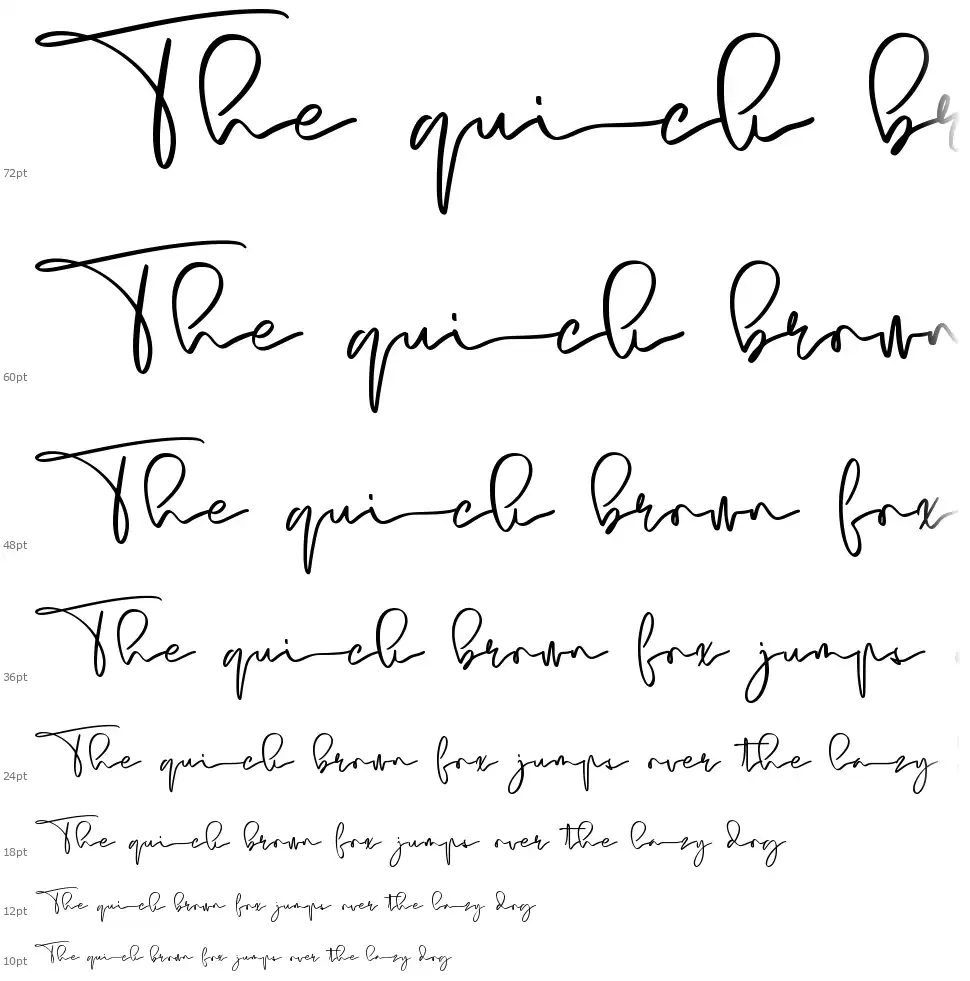 The quick br
72pt
The quick brown
60pt
The quick brown fox
48pt
The quick brown fox jumps
36pt
The quick brown fox jumps over the lazy
24pt
The quick brown fox jumps over the lazy dog
18pt
The quick brown fox jumps over the lazy dog
12pt
The quick brown fox jumps over the lazy dog
10pt